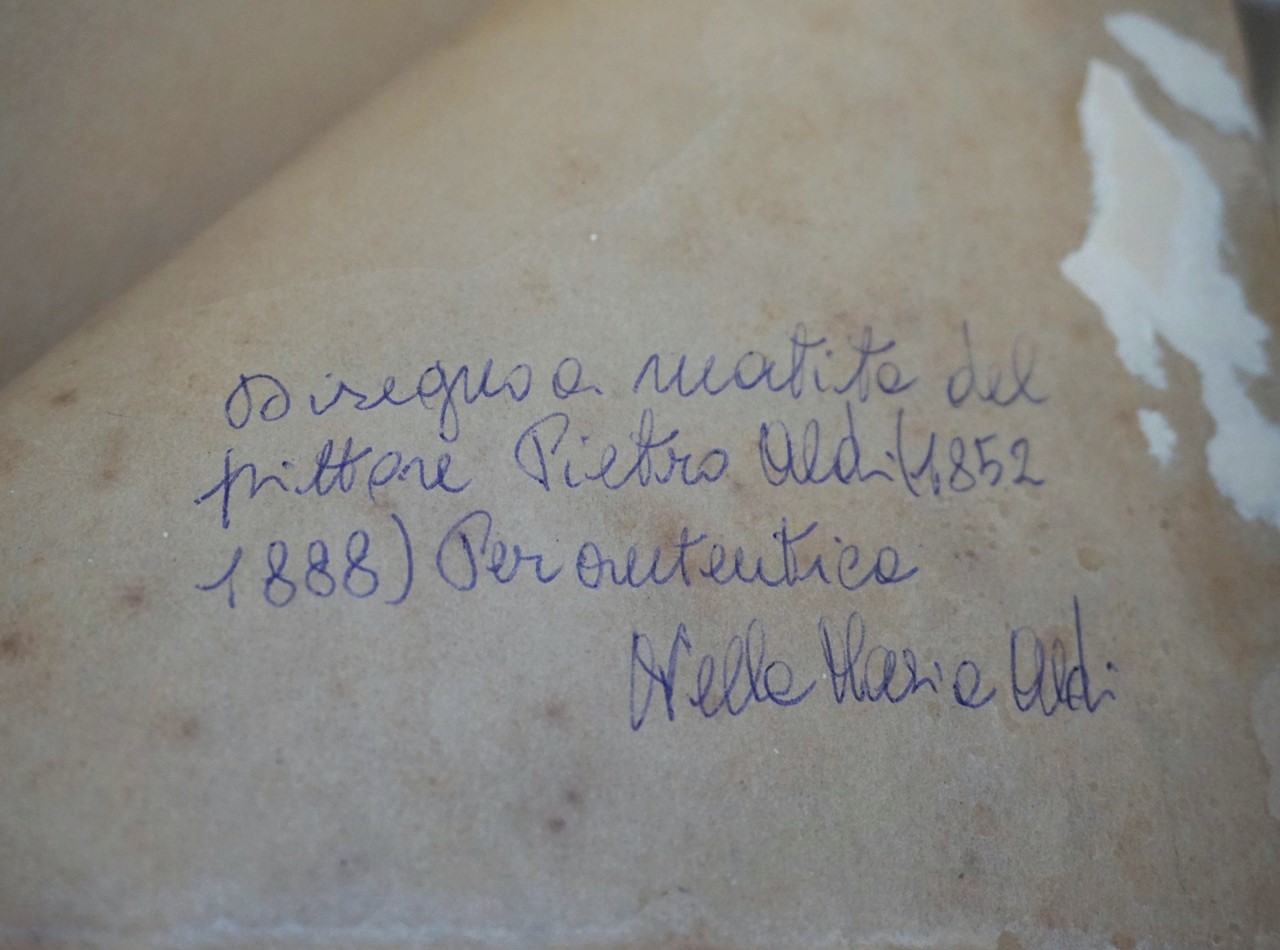 Disegno a matita del
pittore Pietro Aldi (1852
1888) Per autentica
Nella Maria Aldi